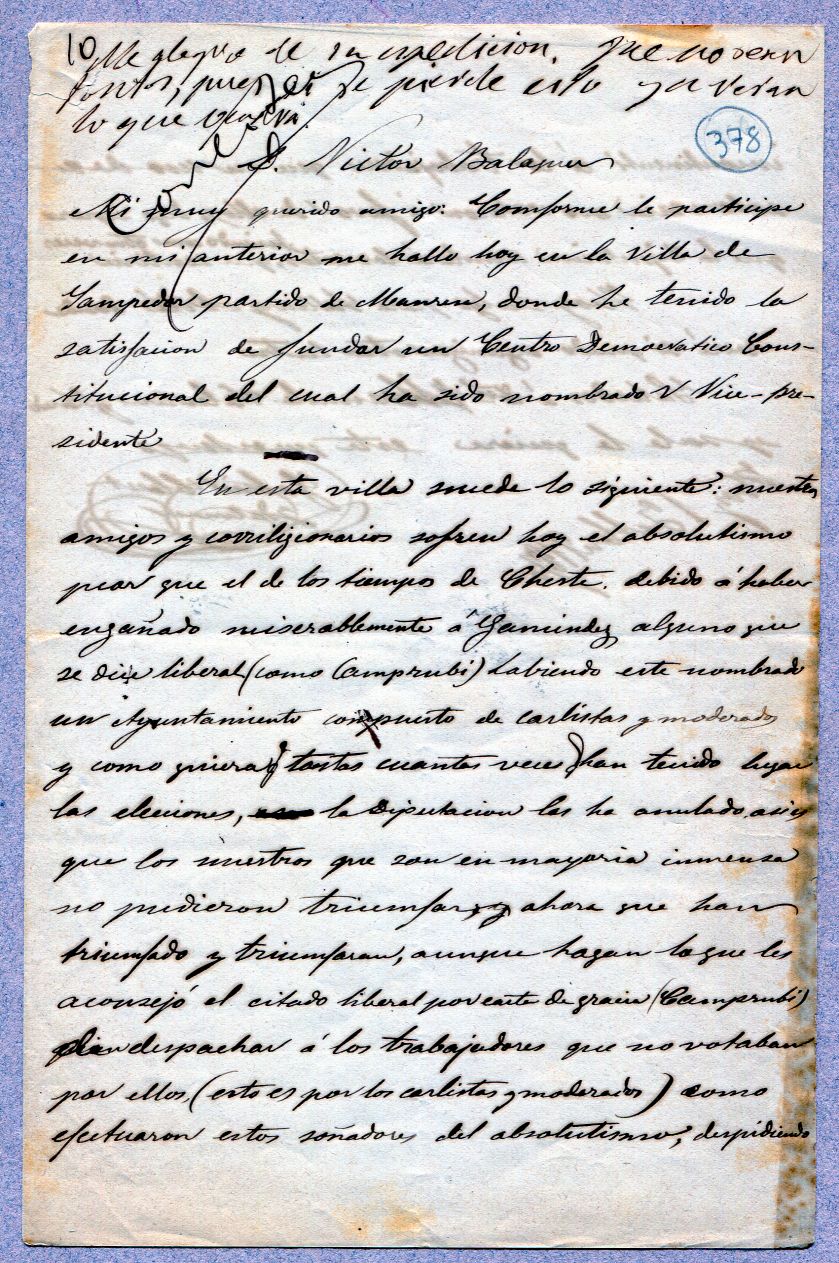 10 Me alegro de su espedicion. Que no sean
tontos, pues si se pierde esto ya veran
lo que
378
D. Victor Balaguer
Mi muy querido amigo: Comforme le participe
en mi anterior me hallo hoy en la Villa de
Sampedor partido de Manresa, donde he tenido la
satisfacion de fundar un Centro Democratico Cons-
titucional del cual ha sido nombrado V Vice-pre-
sidente
En esta villa sucede lo siguiente: nuestros
amigos y corriligionarios sofren hoy el absolutismo
pior que el de los tiempos de Cheste, debido á haber
engañado miserablemente á Gaminde, alguno que
se dice liberal (como Camprubi) habiendo este nombrado
un Ayuntamiento compuesto de carlistas y moderados
y como quiera tantas cuantas veces han tenido lugar
las elecciones, la Diputacion las ha anulado, asi es
que los nuestros que son en mayoria inmensa
no pudieron triumfar, y ahora que han
triumfado y triumfaran, aunque hagan lo que les
aconsejó el citado liberal por carta de gracia (Camprubi)
despachar á los trabajadores que no votaban
por ellos, (esto es por los carlistas y moderados) como
efectuaron estos soñadores del absolutismo, despidiendo